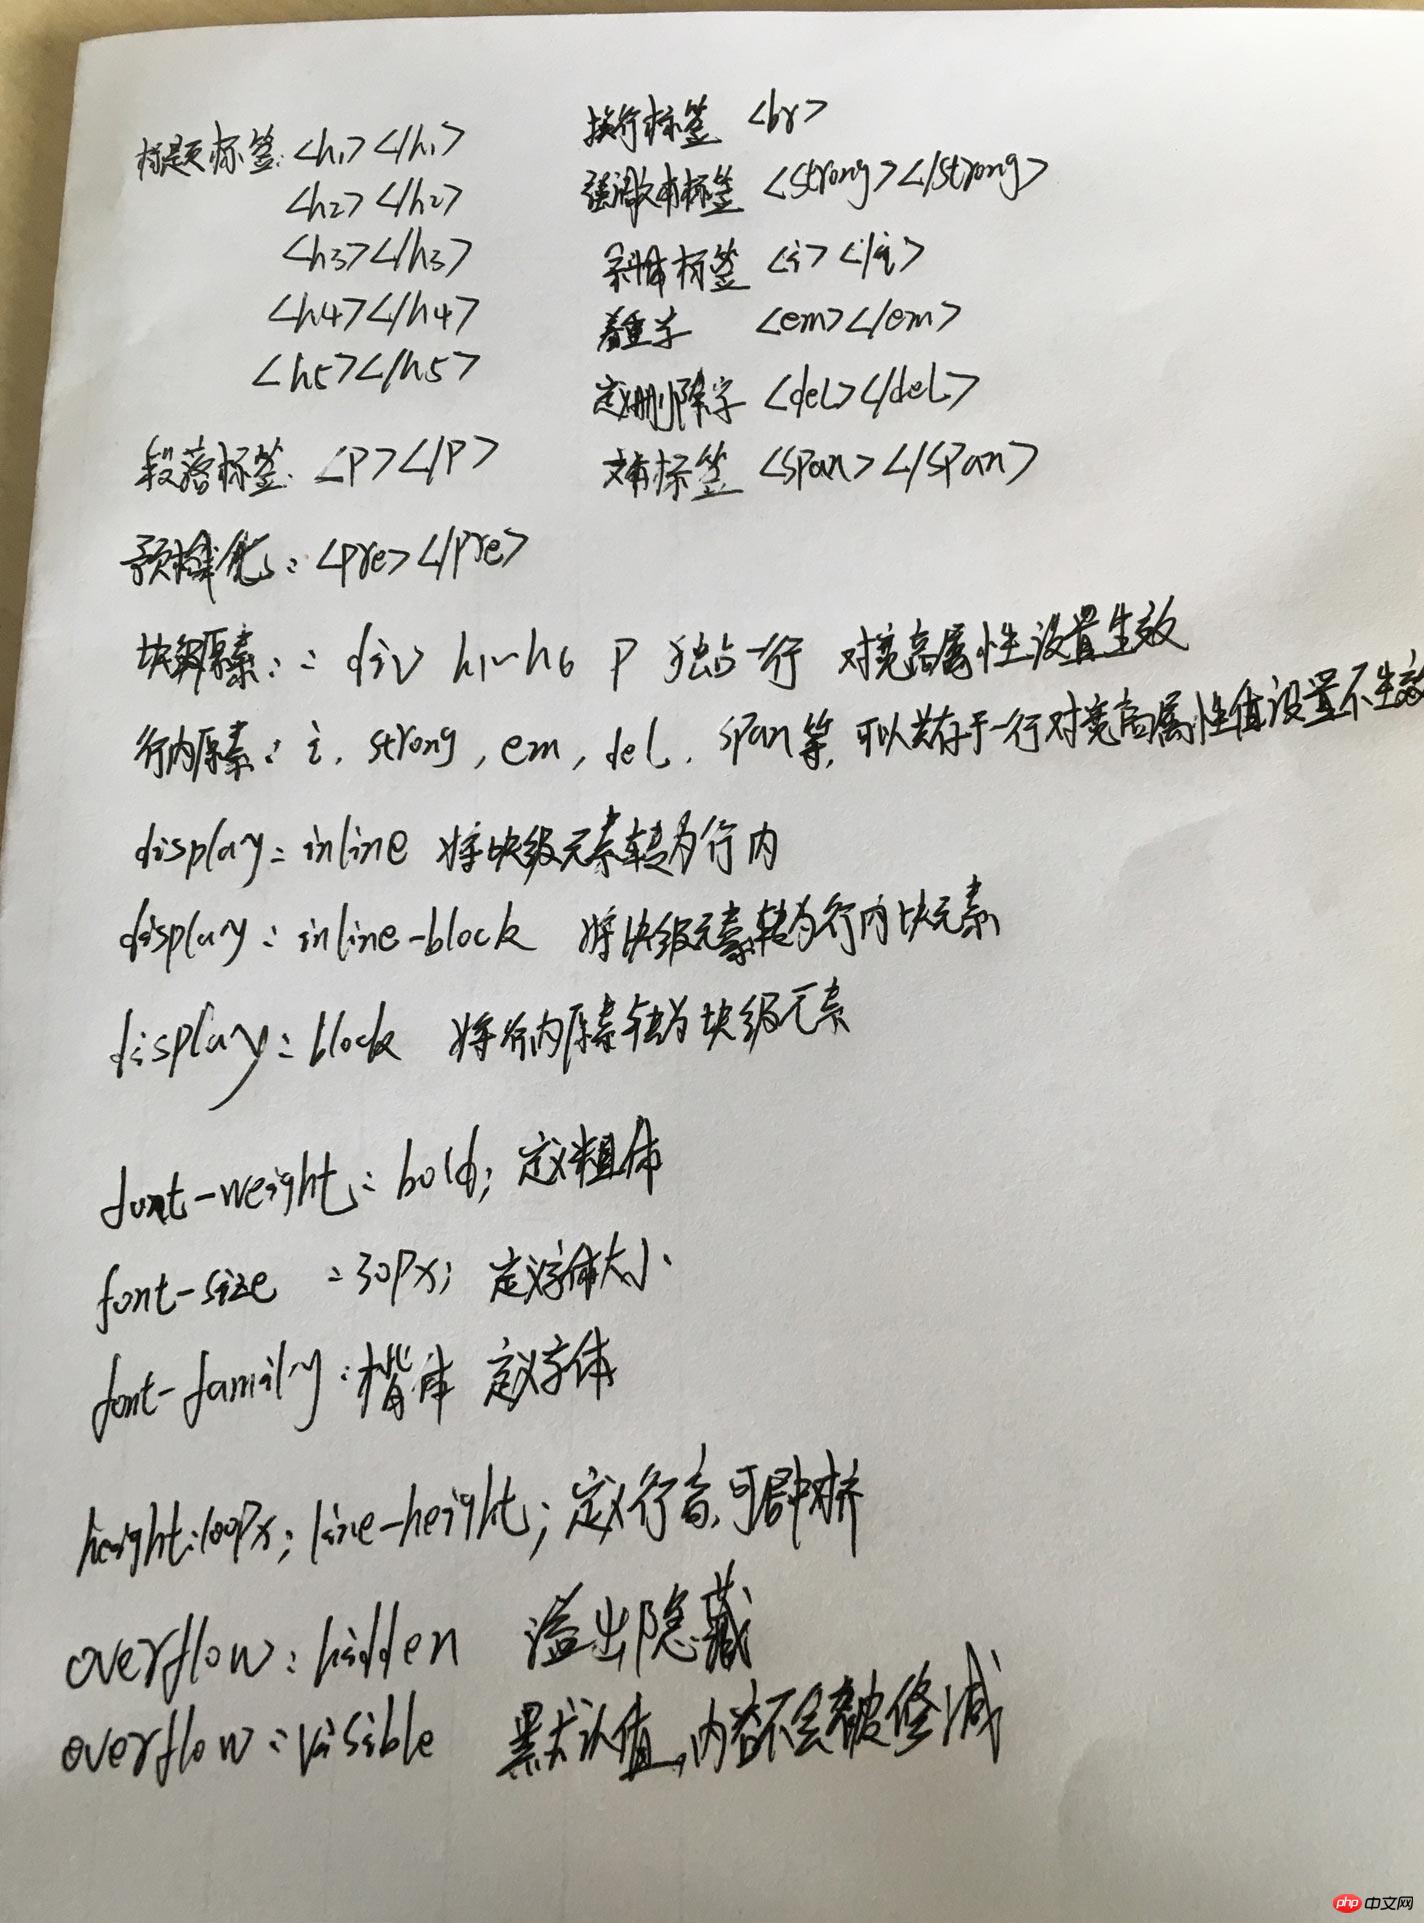 标题标签:<h1></h1>
<h2></h2>
<h3></h3>
<h4></h4>
<h5></h5>
段落标签:<P></P>
换行标签 <br>
强调文本标签 <strong></strong>
斜体标签 <i></i>
着重字 <em></em>
定义删除字 <del></del>
文本标签 <span></span>
预格式化:<pre></pre>
块级原素:: div h1~h6 P 独占一行 对宽高属性设置生效
行内原素:i, strong, em, del, span等,可以共存于一行对宽高属性值设置不生效
display:inline 将块级元素转为行内
display:inline-block 将块级元素转为行内块元素
display:block 将行内原素转为块级元素
font-weight:bold; 定义粗体
font-size :30px; 定义字体大小
font-family:楷体 定义字体
height:100Px; line-height; 定义行高,可居中对齐
overflow:hidden 溢出隐藏
overflow:visible 默认值,内容不会被修减
php 中文网